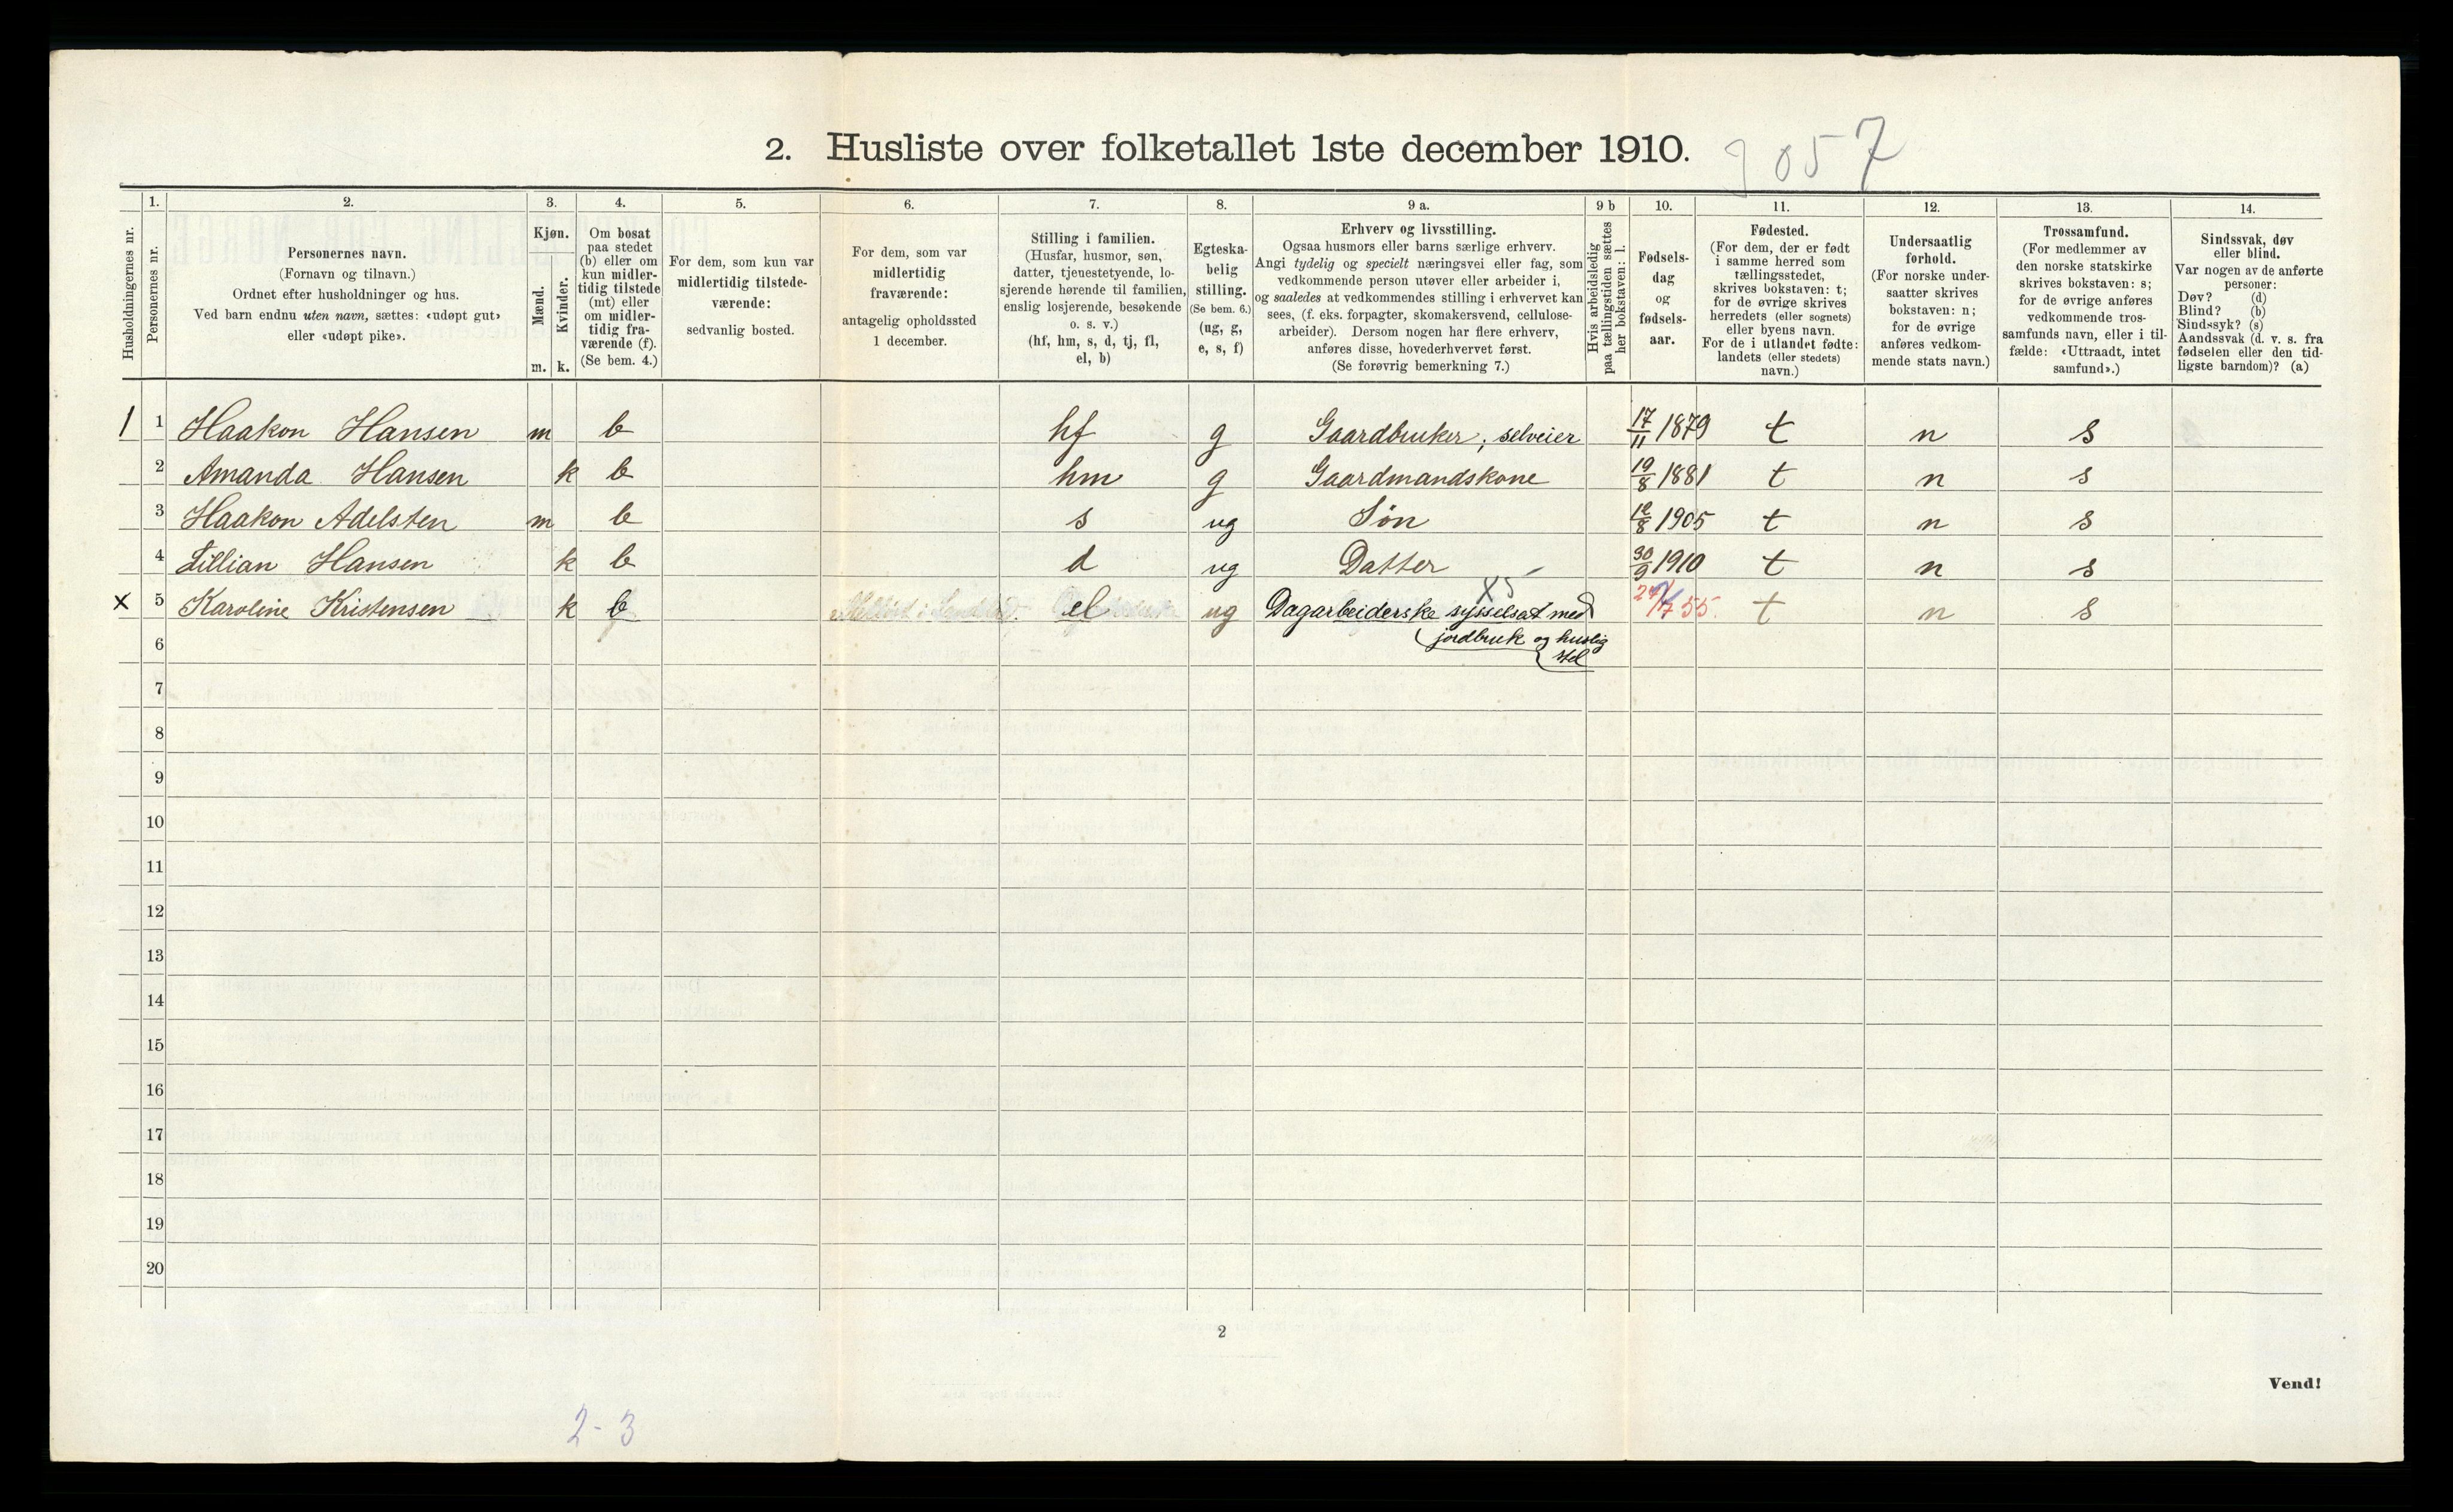 2. Husliste over folketallet 1ste december 1910.
9057
Husholdningernes nr.
1.
Personernes nr.
2.
Personernes navn.
(Fornavn og tilnavn.)
Ordnet efter husholdninger og hus.
Ved barn endnu uten navn, sættes: «udøpt gut»
eller «udøpt pike».
3.
Kjøn.
Mænd.
m.
Kvinder.
k.
4.
Om bosat
paa stedet
(b) eller om
kun midler-
tidig tilstede
(mt) eller
om midler-
tidig fra-
værende (f).
(Se bem. 4.)
5.
For dem, som kun var
midlertidig tilstede-
værende:
sedvanlig bosted.
6.
For dem, som var
midlertidig
fraværende:
antagelig opholdssted
1 december.
7.
Stilling i familien.
(Husfar, husmor, søn,
datter, tjenestetyende, lo-
sjerende hørende til familien,
enslig losjerende, besøkende
o. s. v.)
(hf, hm, s, d, tj, fl,
el, b)
8.
Egteska-
belig
stilling.
(Se bem. 6.)
(ug, g,
e, s, f)
9 a.
Erhverv og livsstilling.
Ogsaa husmors eller barns særlige erhverv.
Angi tydelig og specielt næringsvei eller fag, som
vedkommende person utøver eller arbeider i,
og saaledes at vedkommendes stilling i erhvervet kan
sees, (f. eks. forpagter, skomakersvend, cellulose-
arbeider). Dersom nogen har flere erhverv,
anføres disse, hovederhvervet først.
(Se forøvrig bemerkning 7.)
9 b
Hvis arbeidsledig
paa tællingstiden sættes
her bokstaven: l.
10.
Fødsels-
dag
og
fødsels-
aar.
11.
Fødested.
(For dem, der er født
i samme herred som
tællingsstedet,
skrives bokstaven: t;
for de øvrige skrives
herredets (eller sognets)
eller byens navn.
For de i utlandet fødte:
landets (eller stedets)
navn.)
12.
Undersaatlig
forhold.
(For norske under-
saatter skrives
bokstaven: n;
for de øvrige
anføres vedkom-
mende stats navn.)
13.
Trossamfund.
(For medlemmer av
den norske statskirke
skrives bokstaven: s;
for de øvrige anføres
vedkommende tros-
samfunds navn, eller i til-
fælde: «Uttraadt, intet
samfund».)
14.
Sindssvak, døv
eller blind.
Var nogen av de anførte
personer:
Døv? (d)
Blind? (b)
Sindssyk? (s)
Aandssvak (d. v. s. fra
fødselen eller den tid-
ligste barndom)? (a)
1 1 Haakon Hansen m b hf g Gaardbruker, selveier 17/11 1879 t n s
2 Amanda Hansen k b hm g Gaardmandskone 19/8 1881 t n s
3 Haakon Adelsten m b s ug Søn 12/8 1905 t n s
4 Lillian Hansen k b d ug Datter 30/9 1910 t n s
x 5 Karoline Kristensen k b el ug Dagarbeiderske sysselsat med 27/7 55. t n s
X5
jordbruk og huslig
stel
6
7
8
9
10
11
12
13
14
15
16
17
18
19
20
2
Vend!
2-3